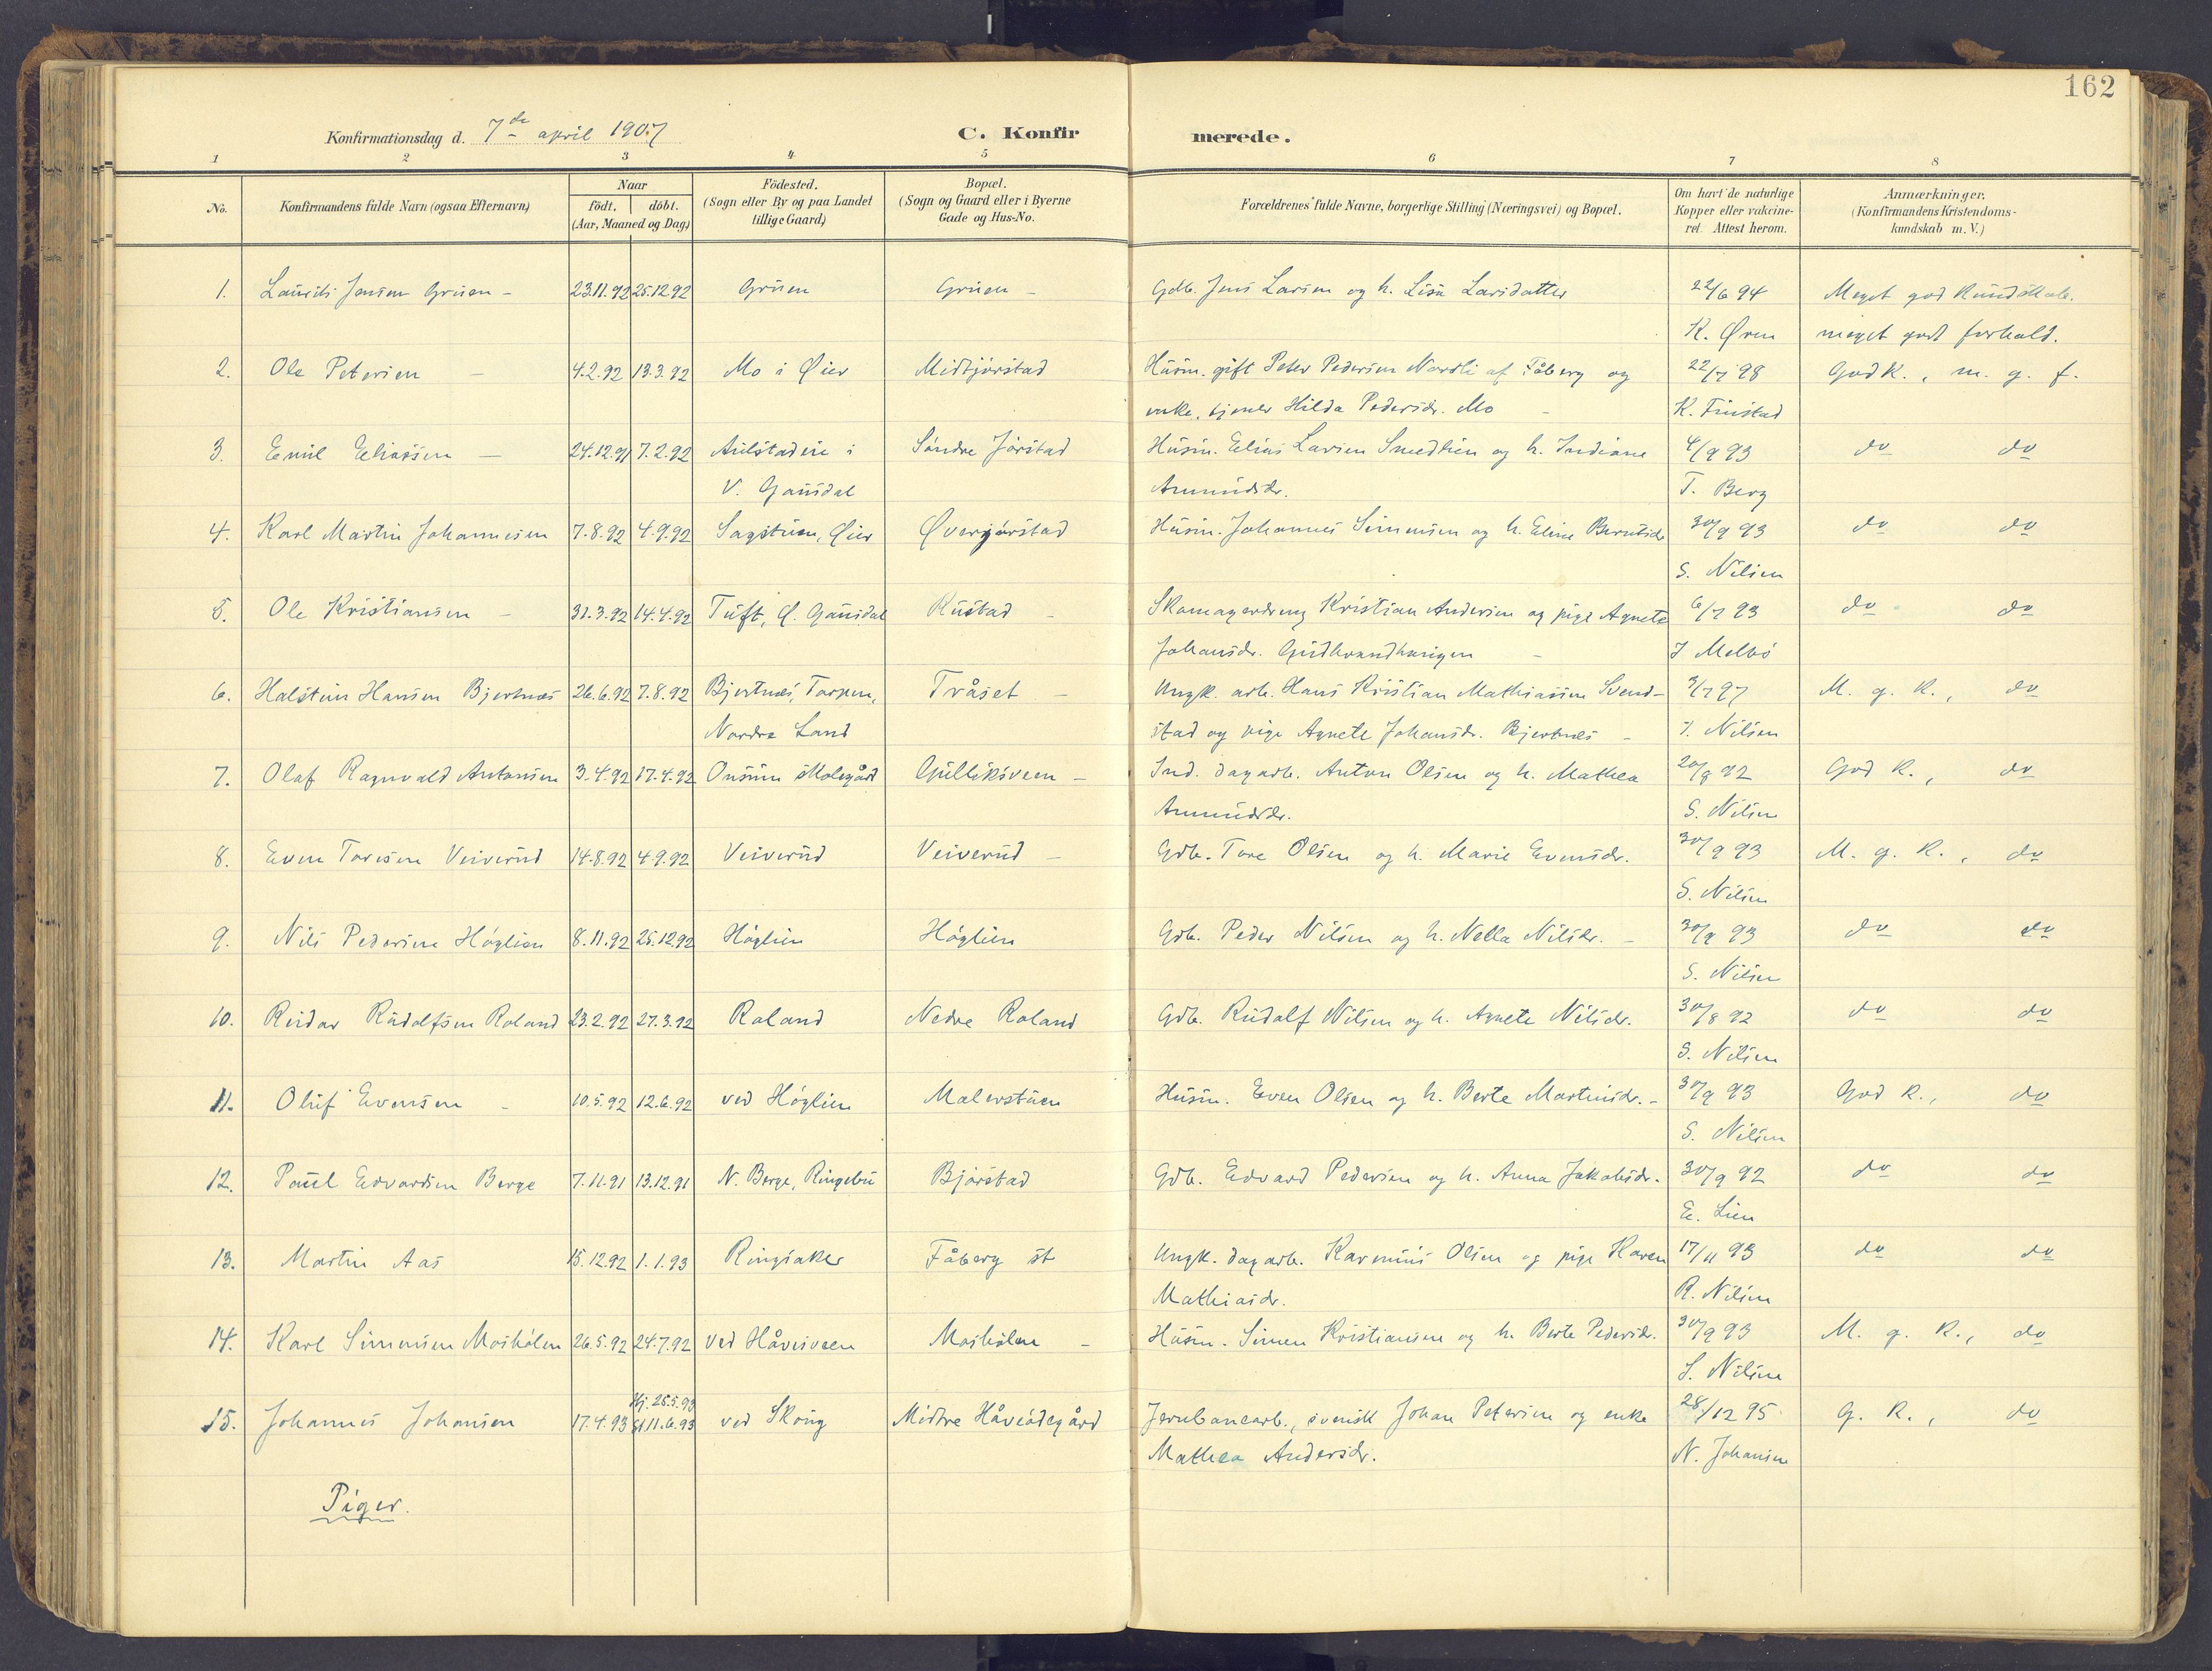 162
Konfirmationsdag d. 7de april 1907
C. Konfirmerede.
1 2 3 4 5 6 7 8
No.
Konfirmandens fulde Navn (ogsaa Efternavn)
Naar
födt. döbt.
(Aar, Maaned og Dag)
Födested.
(Sogn eller By og paa Landet
tillige Gaard)
Bopæl.
(Sogn og Gaard eller i Byerne
Gade og Hus-No.
Forældrenes fulde Navne, borgerlige Stilling (Næringsvei) og Bopæl.
Om havt de naturlige
Kopper eller vakcine-
ret. Attest herom.
Anmærkninger.
(Konfirmandens Kristendoms-
kundskab m. V.)
1. Laurits Jensen Gruen - 23.11.92 25.12.92 Gruen Gruen - Gdb. Jens Larsen og h. Lisa Larsdatter 22/6 94 Meget god kundskab.
K. Øren meget godt forhold.
2. Ole Petersen - 4.2.92 13.3.92 Mo i Øier Midtjørstad Husm. gift Peter Pedersen Nordli af Fåberg og 22/7 98 God K., m. g. f.
enke, tjener Hilda Pedersdr. Mo - K. Finstad
3. Emil Eliassen - 24.12.91 7.2.92 Aulstadeie i Søndre Jørstad Husm. Elias Larsen Smedhien og h. Indiane 4/9 93 do do
V. Gausdal Amundsdr. T. Berg
4. Karl Martin Johannesen 7.8.92 4.9.92 Sagstuen, Øier Øverjørstad Husm. Johannes Simensen og h. Eline Berntsdr 30/9 93 do do
S. Nilsen
5. Ole Kristiansen - 31.3.92 14.4.92 Tuft, Ø. Gausdal Rustad - Skomagerdreng Kristian Andersen og pige Agnete 6/7 93 do do
Johansdr. Gudbrandhaugen - J Melbö
6. Halstein Hansen Bjertnæs 26.6.92 7.8.92 Bjertnæs, Torpen, Tråset - Ungk. arb. Hans Kristian Mathiassen Svend- 3/7 97 M. g. K., do
Nordre Land stad og pige Agnete Johansdr. Bjertnæs - J. Nilsen
7. Olaf Ragnvald Antonsen 3.4.92 17.4.92 Onsum skolegård Gulliksveen - Ind. dagarb. Anton Olsen og h. Mathea 20/8 92 God K., do
Amundsdr. S. Nilsen
8. Even Toresen Veiverud 14.8.92 4.9.92 Veiverud Veiverud - Gdb. Tore Olsen og h. Marie Evensdr. 30/9 93 M. g. K., do
S. Nilsen
9. Nils Pedersen Høglien 8.11.92 25.12.92 Høglien Høglien Gdb. Peder Nilsen og h. Nella Nilsdr. - 30/9 93 do do
S. Nilsen
10. Reidar Rudolfsen Roland 23.2.92 27.3.92 Roland Nedre Roland Gdb. Rudolf Nilsen og h. Agnete Nilsdr. 30/8 92 do do
S. Nilsen
11. Oluf Evensen - 10.5.92 12.6.92 ved Høglien Malerstuen Husm. Even Olsen og h. Berte Martinsdr. - 30/9 93 God K., do
S. Nilsen
12. Paul Edvardsen Berge 7.11.91 13.12.91 N. Berge, Ringebu Bjørstad Gdb. Edvard Pedersen og h. Anna Jakobsdr. 30/9 92 do do
E. Lien
13. Martin Aas 15.12.92 1.1.93 Ringsaker Fåberg st Ungk. dagarb. Karenius Olsen og pige Karen 17/11 93 do do
Mathiasdr. R. Nilsen
14. Karl Simensen Mosholen 26.5.92 24.7.92 ved Håvesveen Mosholen - Husm. Simen Kristiansen og h. Berte Pedersdr. 30/9 93 M. g. K., do
S. Nilsen
15. Johannes Johansen 17.4.93 Hj. 25.5.93 st. 11.6.93 ved Skoug Midtre Håvéodegård Jernbanearb., svensk Johan Petersen og enke 28/12 95 G. K., do
Mathea Andersdr. N. Johansen
Piger.